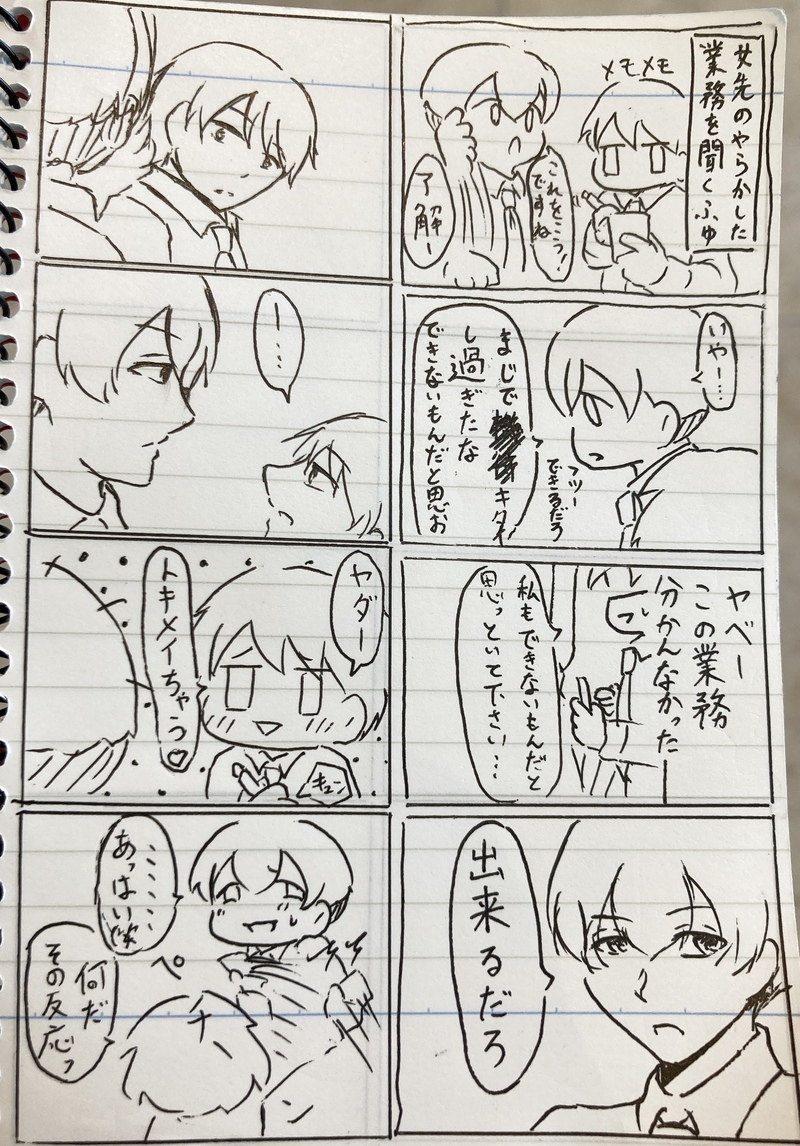 女先のやらかした
業務を聞くふゆ
メモメモ
これをこうっ!
ですね
了解ー
いやー…
まじでキタイ
し過ぎたな
できないもんだと思お
フツー
できるだろ
ヤベー
この業務
分かんなかった
私もできないもんだと
思っといて下さい…
出来るだろ
ー…
ヤダー
トキメイちゃう♡
キュン
……
あっはい笑
ペ
チ
ン
何だ
その反応っ